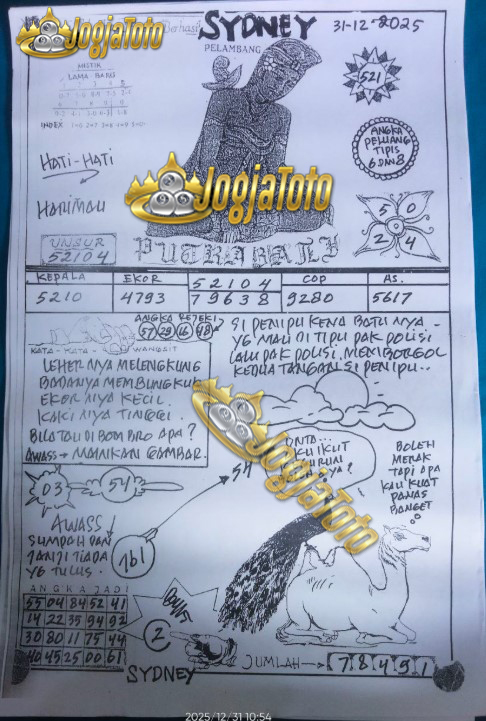 JogjaToto
Berhasil
SYDNEY
31-12-2025
PELAMBANG
MISTIK
LAMA - BARU
INDEX
521
HATI-HATI
HARIMAU
ANGKA
PELUANG
TIPIS
6 DAN 8
JogjaToto
5 0
2 4
UNSUR
52104
KEPALA EKOR 52104 COP AS.
5210 4793 79638 9280 5617
ANGKA REJEKI
57 29 16 48
KATA - KATA WANGSIT
LEHER NYA MELENGKUNG
BADANYA MEMBUNGKUK
EKOR NYA KECIL.
KAKI NYA TINGGI.
BINATANG DI BOM BRO APA?
AWASS → MAINKAN GAMBAR.
SI PENIPU KENA BATU NYA -
YG MAU DI TIPU PAK POLISI
LALU PAK POLISI. MEMBORGOL
KEDUA TANGAN SI PENIPU..
JogjaToto
ONTA...
BOLEH
MERAK
TAPI APA
KAU KUAT
PANAS
BANGET
54
03
54
AWASS
SUMPAH DAN
JANJI TIADA
YG TULUS.
161
ANGKA JADI
55 04 84 52 41
14 22 35 94 92
30 80 11 75 44
40 45 25 00 61
2
SYDNEY
JUMLAH → 7 8 4 9 1
2025/12/31 10:54